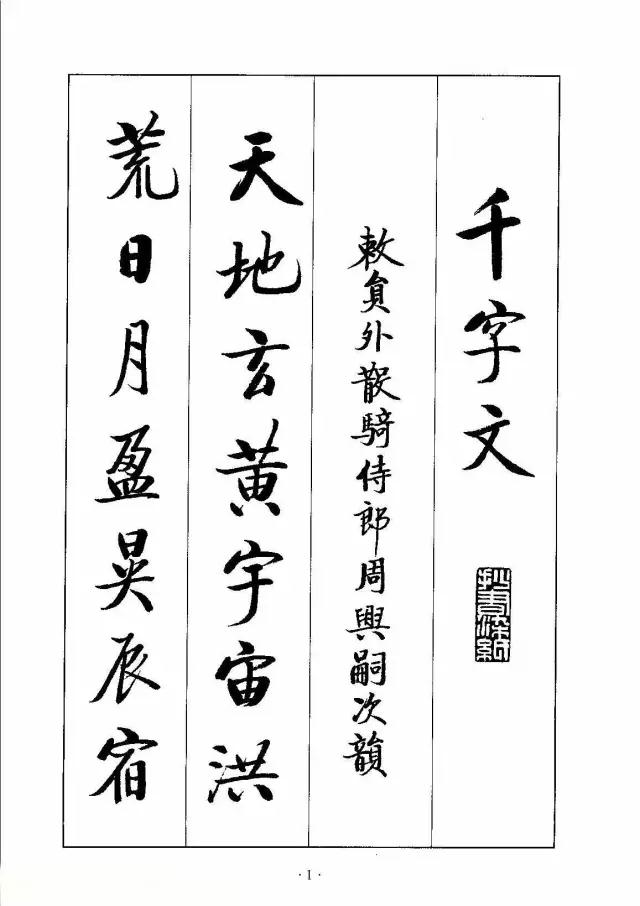 千字文
敕員外散騎侍郎周興嗣次韻
天地玄黄宇宙洪
荒日月盈昃辰宿
·1·